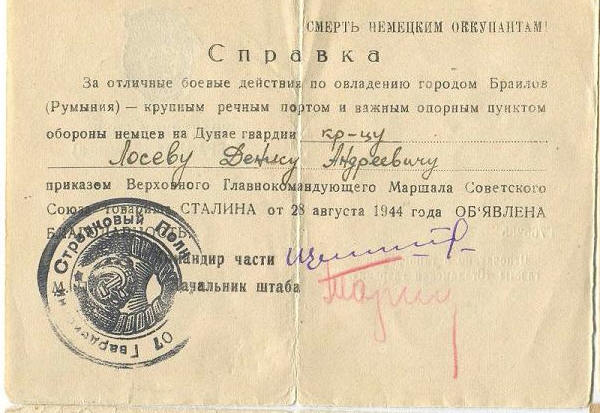 СМЕРТЬ НЕМЕЦКИМ ОККУПАНТАМ!
Справка
За отличные боевые действия по овладению городом Браилов
(Румыния) — крупным речным портом и важным опорным пунктом
обороны немцев на Дунае гвардии кр-цу
Лосеву Денису Андреевичу
приказом Верховного Главнокомандующего Маршала Советского
Союза товарища СТАЛИНА от 28 августа 1944 года ОБ'ЯВЛЕНА
БЛАГОДАРНОСТЬ.
Командир части
Начальник штаба
Стрелковый Полк
Гвардейский